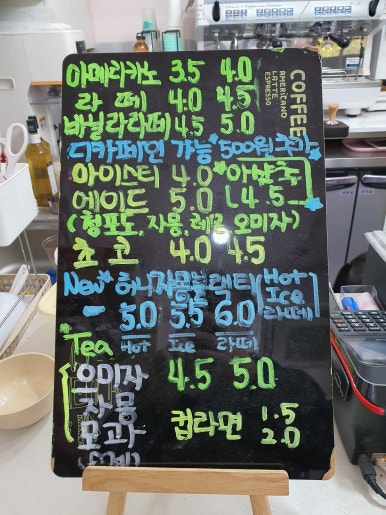 COFFEE
AMERICANO
LATTE
ESPRESSO
아메리카노 3.5 4.0
라떼 4.0 4.5
바닐라라떼 4.5 5.0
디카페인 가능 *500원 추가
아이스티 4.0 *아샷추
에이드 5.0 4.5
(청포도, 자몽, 레몬 오미자)
초코 4.0 4.5
New* 허니자몽블랙티 (Hot
Ice
라떼)
5.0 5.5 6.0
Hot Ice 라떼
Tea
오미자 4.5 5.0
자몽
모과
컵라면 1.5
2.0